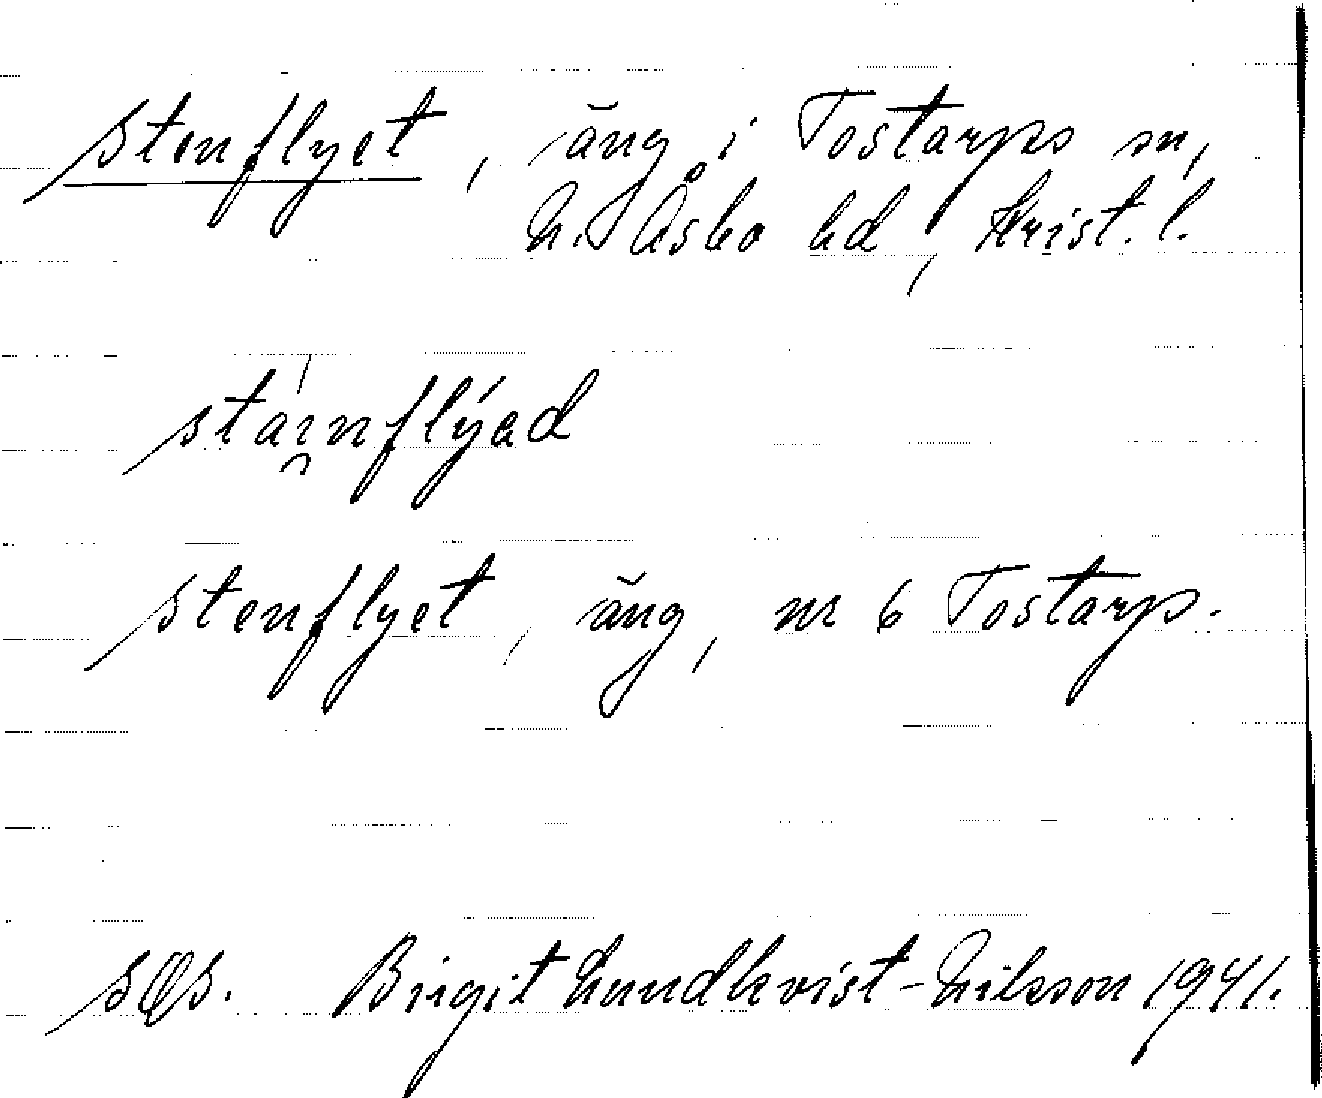 Stenflyet, äng i Tostarps sn,
N. Åsbo hd, Krist. l.
staı̯́nflýəd
Stenflyet, äng, nr 6 Tostarp.
SOS. Birgit Lundkvist-Nilsson 1941.